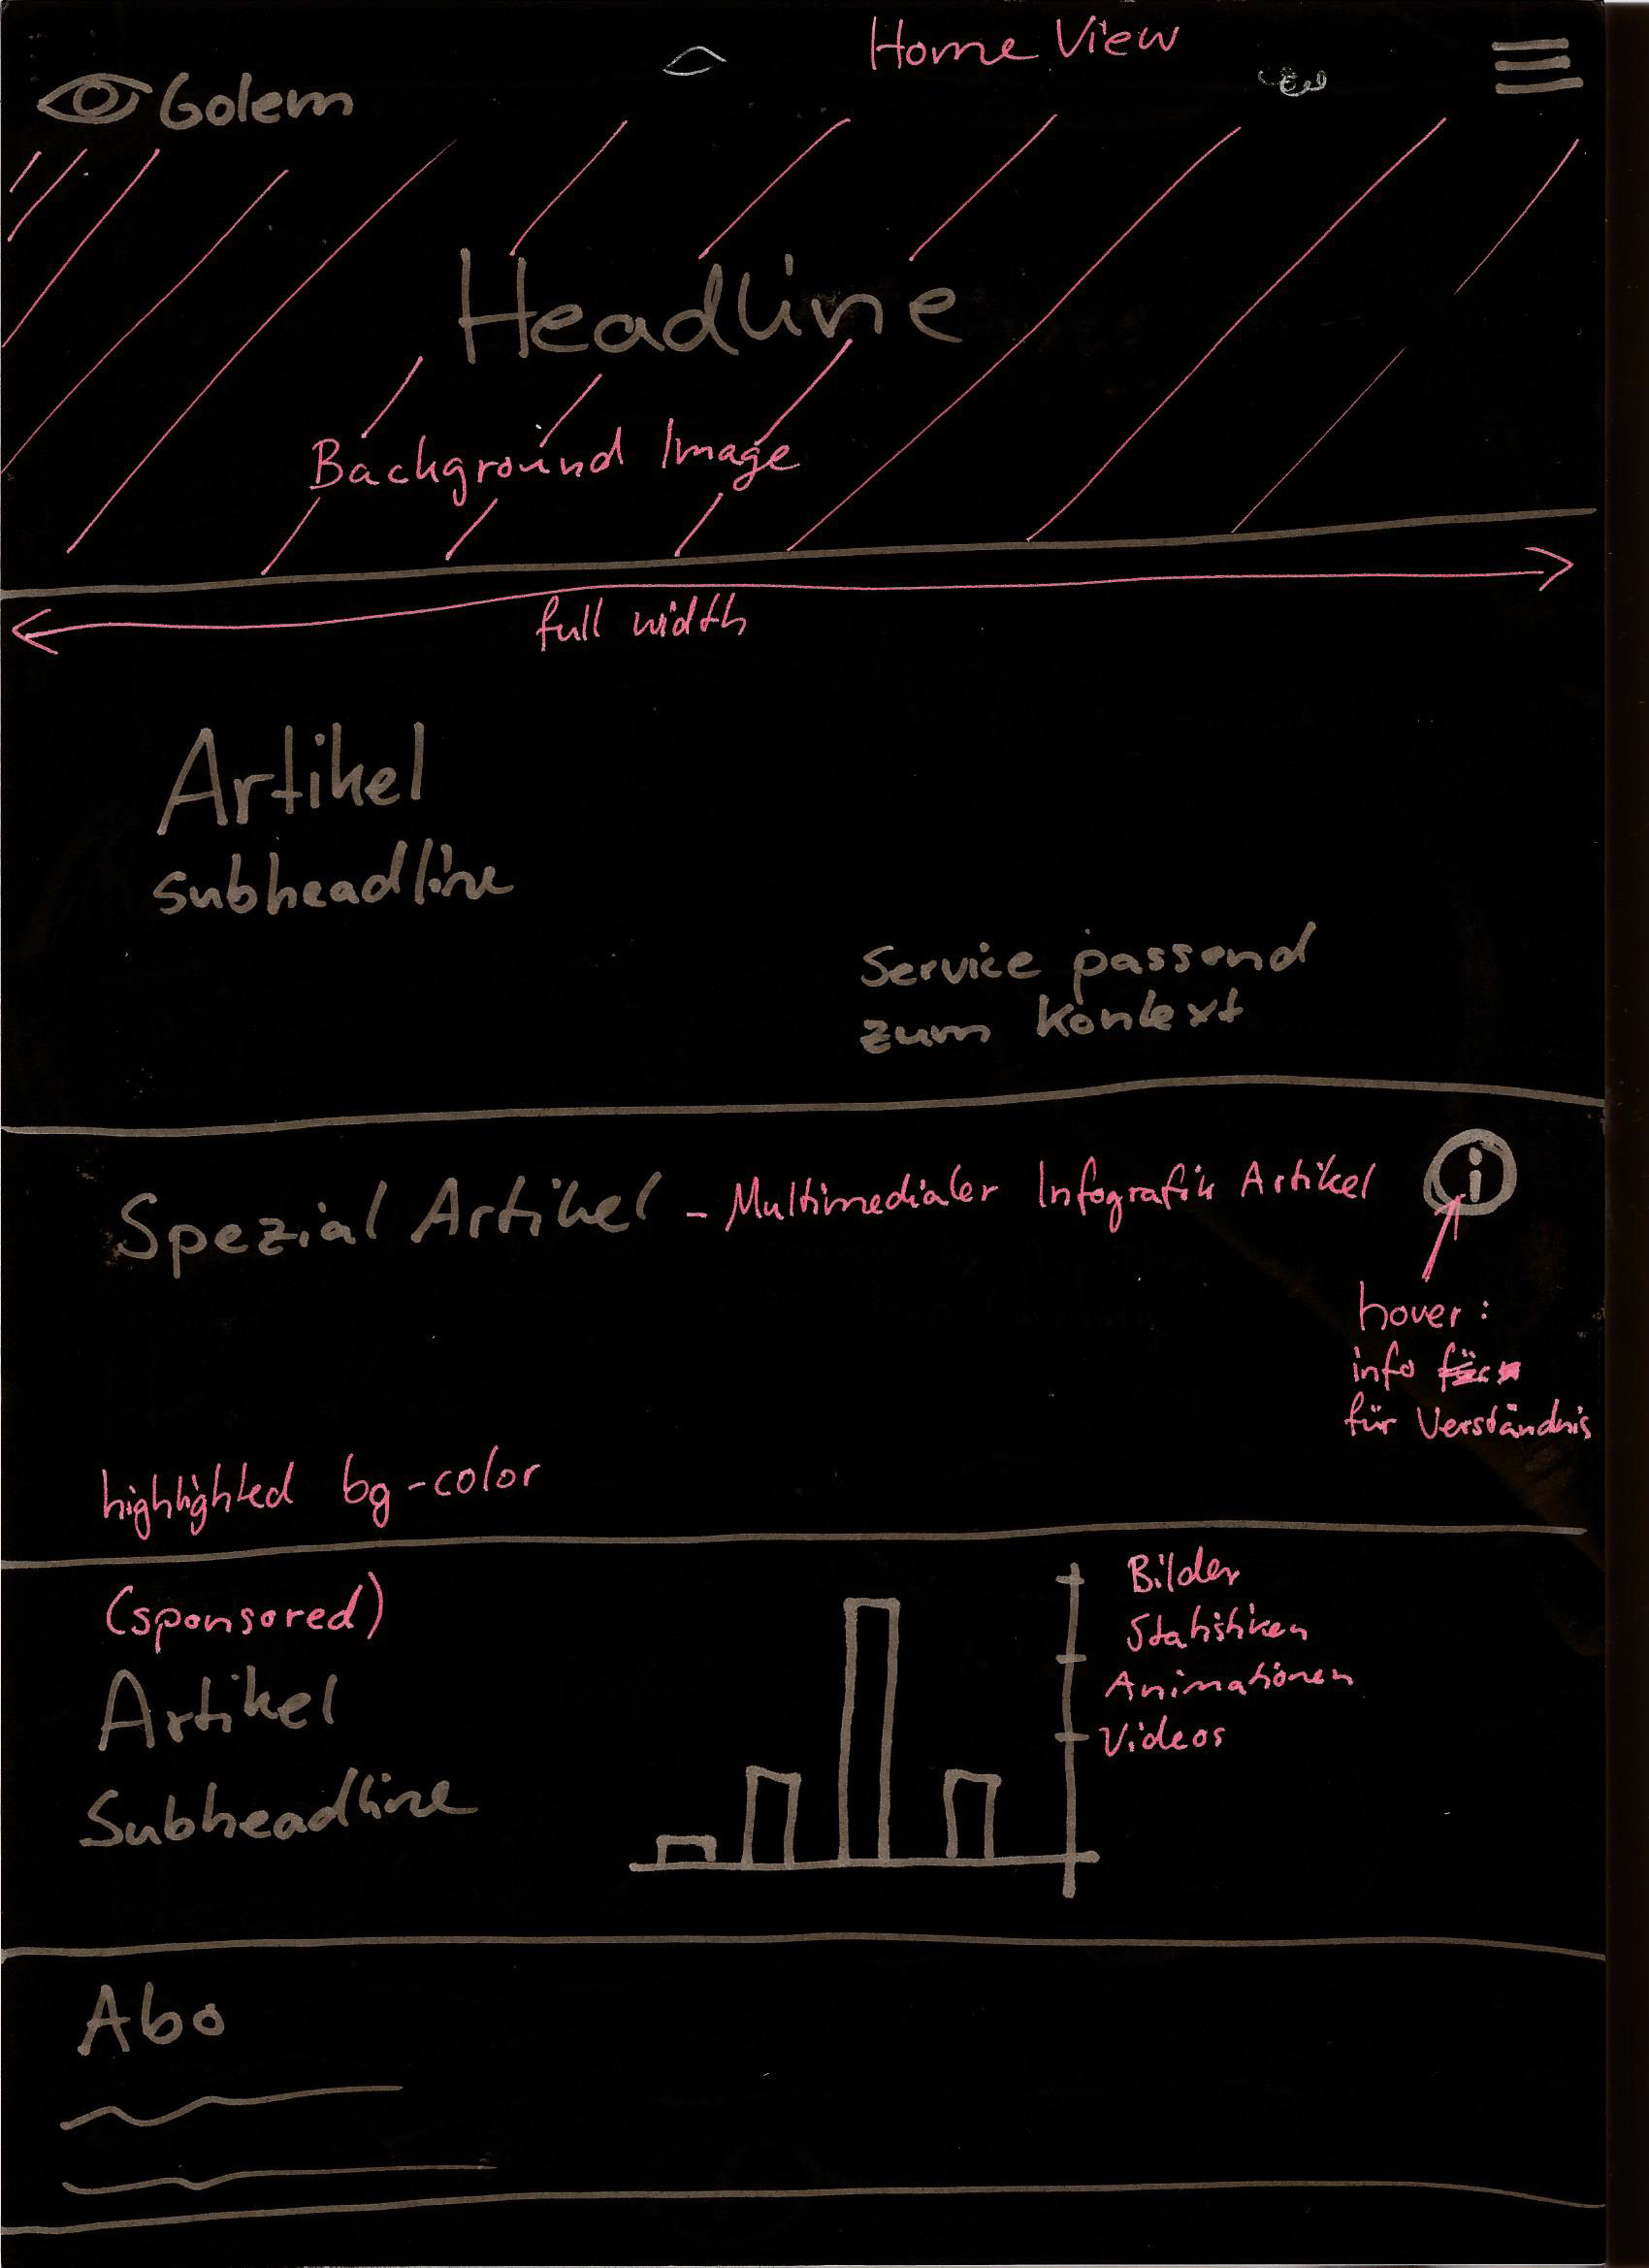 Home View
Golem
Headline
Background Image
full width
Artikel
subheadline
Service passend
zum Kontext
Spezial Artikel - Multimedialer Infografik Artikel
i
hover:
info für
für Verständnis
highlighted bg-color
(sponsored)
Artikel
Subheadline
Bilder
Statistiken
Animationen
Videos
Abo